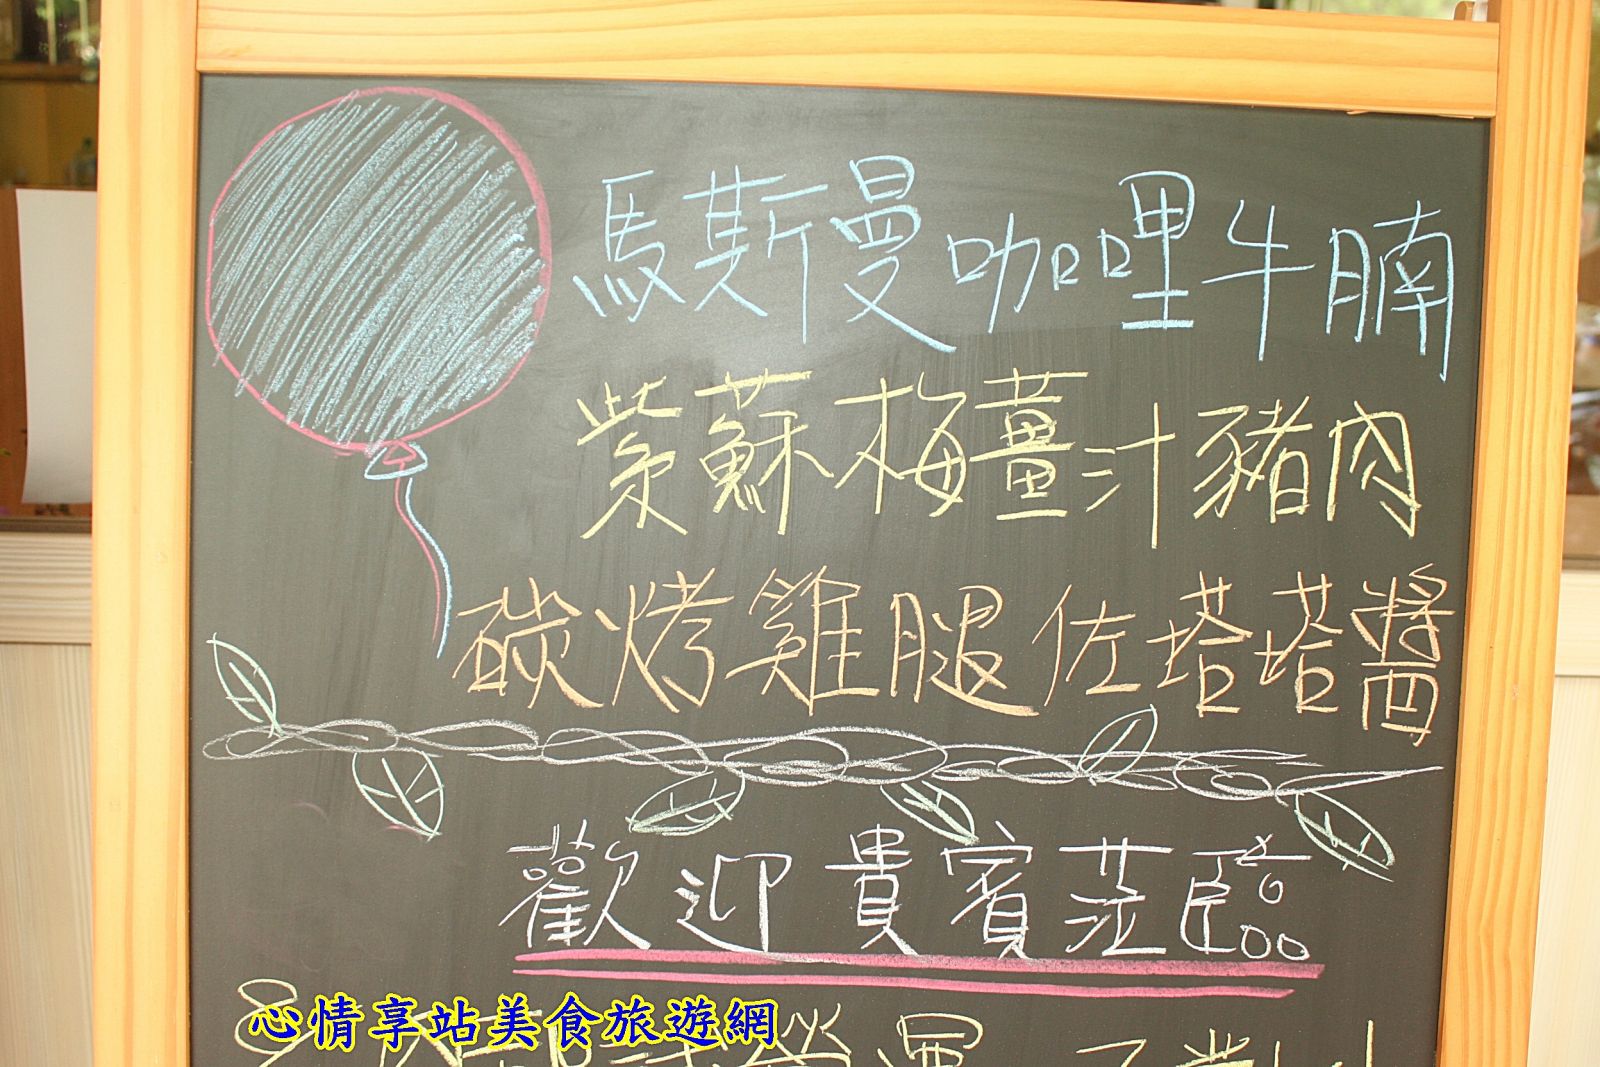 馬斯曼咖哩牛腩
紫蘇梅薑汁豬肉
碳烤雞腿佐塔塔醬
歡迎貴賓蒞臨
心情享站美食旅遊網